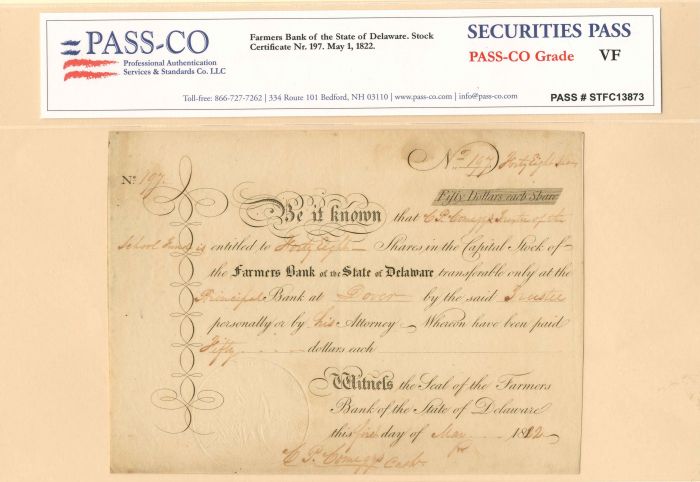 PASS-CO
Professional Authentication
Services & Standards Co. LLC
Farmers Bank of the State of Delaware. Stock
Certificate Nr. 197. May 1, 1822.
SECURITIES PASS
PASS-CO Grade VF
Toll-free: 866-727-7262 | 334 Route 101 Bedford, NH 03110 | www.pass-co.com | info@pass-co.com
PASS # STFC13873
No 197 Forty Eight
No 197.
Fifty Dollars each Share
Be it known that C. P. Comegys Trustee of the
School Fund is entitled to Forty Eight Shares in the Capital Stock of
the Farmers Bank of the State of Delaware transferable only at the
Principal Bank at Dover by the said Trustee
personally or by his Attorney Whereon have been paid
Fifty dollars each
Witness the Seal of the Farmers
Bank of the State of Delaware
this first day of May 1822
C. P. Comegys Cash